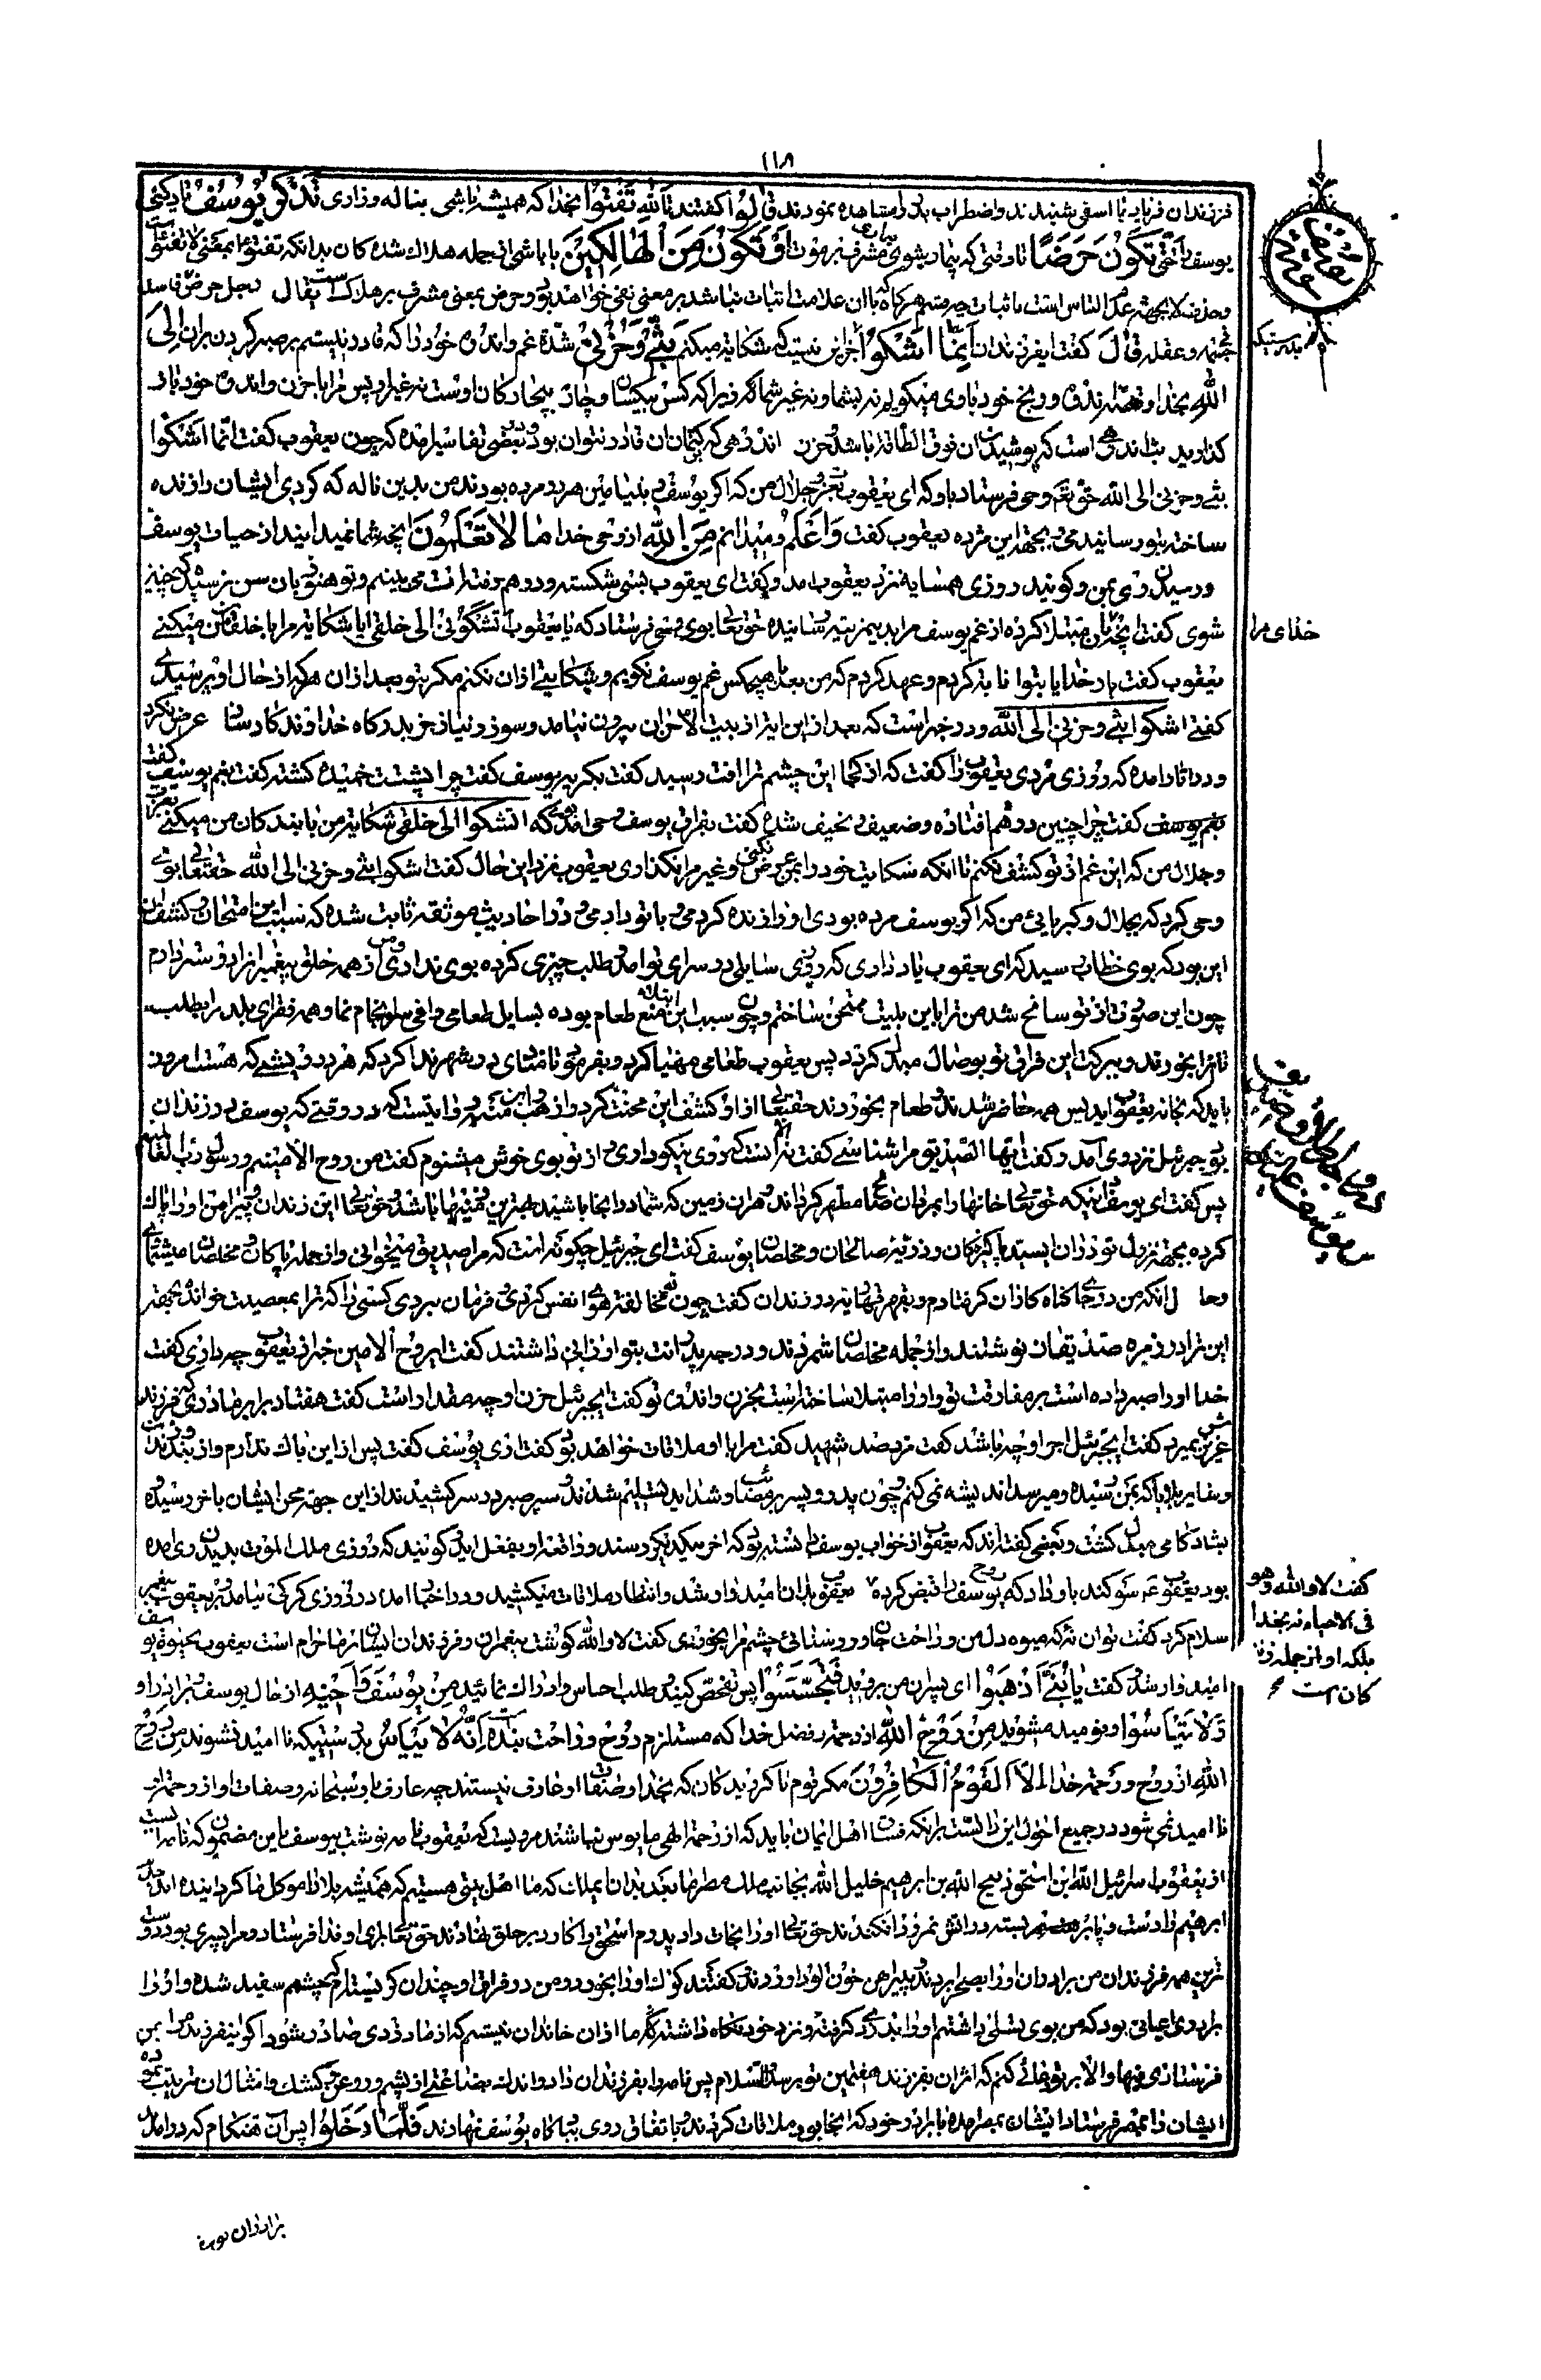 ۱۱۸
فرزندان فریاد یا اسفی شنیدند و اضطراب پدر را مشاهده نمودند قالُوا گفتند تَاللّٰهِ تَفْتَؤُا بخدا که همیشه باشی بناله و زاری تَذْکُرُ یُوسُفَ تا یاد کنی
یوسف را حَتّٰی تَکُونَ حَرَضًا تا وقتی که بیمار شوی مشرف بر موت اَوْ تَکُونَ مِنَ الْهَالِکِینَ یا باشی از جمله هلاک شده کان بدانکه تفتؤا بمعنی لا تفتؤا است
وحذف لا بجهة عدم التباس است باثبات چه قسم هرگاه با ان علامت اثبات نباشد بر معنی نفی خواهد بود و حرض بمعنی مشرف بر هلاک است یقال رجل حرض فاسد
جسمه و عقله قالَ گفت ای فرزندان اِنَّمٰا اَشْکُوا جز این نیست که شکایت میکنم بَثّٖی وَ حُزْنٖی شدة غم و اندوه خود را که قادر نیستم بر صبر کردن بران اِلَی
اللّٰهِ بخدا و قصه اندوه و رنج خود باوی میگویم نه بشما و نه غیر شما زیرا که کس بیکسان و چاره بیچارگان اوست نه غیر او پس مرا با حزن و اندوه خود باز
گذارید بث اندوهی است که پوشیدن ان فوق الطاقة باشد و حزن اندوهی که کتمان ان قادر نتوان بود و در بعضی تفاسیر امده که چون یعقوب گفت انما اشکوا
بثی و حزنی الی الله حق تعم وحی فرستاد باو که ای یعقوب بعزت و جلال من که اگر یوسف و بنیامین هر دو مرده بودند من بدین ناله که کردی ایشان را زنده
ساخته بتو رسانیدمی و بجهة این مژده یعقوب گفت وَاَعْلَمُ و میدانم مِنَ اللّٰهِ از وحی خدا مٰا لٰا تَعْلَمُونَ انچه شما نمیدانید از حیات یوسف
و رسیدن وی بمن و گویند روزی همسایه نزد یعقوب امد و گفت ای یعقوب بسی شکسته و در هم رفته ات می بینم و تو هنوز بان سن نرسیده که چنین
شوی گفت انچه بان مبتلا کرده از غم یوسف مرا بدین مرتبه رسانیده حق تعالی بوی وحی فرستاد که یا یعقوب اتشکونی الی خلقی ایا شکایت مرا با خلقان من میکنی
یعقوب گفت بار خدایا بتو انابه کردم و عهد کردم که من بعد با هیچکس غم یوسف نگویم و شکایتی ازان نکنم مگر بتو بعد ازان هرکه از حال او پرسیدی
گفتی اشکوا بثی و حزنی الی الله و در خبر است که بعد از این ایتر از بیت الاحزان بیرون نیامد و سوز و نیاز جز بدرگاه خداوند کارساز عرض نکرد
و در اثار امده که روزی مردی یعقوب را گفت که از کجا این چشم ترا افت رسید گفت بگریه یوسف گفت چرا پشتت خمیده گشته گفت بغم یوسف گفت
بغم یوسف گفت چرا چنین در هم افتاده و ضعیف و نحیف شده گفت بفراق یوسف وحی امد که اتشکوا الی خلقی شکایت من با بندکان من میکنی بعزت
و جلال من که این غم از تو کشف نکنم تا انکه شکایت خود را بمن عرض نکنی و غیر مرا نگذاری یعقوب نزد این حال گفت اشکوا بثی و حزنی الی الله حقتعالی بوی
وحی کرد که بجلال و کبریائی من که اگر یوسف مرده بودی او را زنده کردمی و باتو دادمی و در احادیث موثقه ثابت شده که سبب این امتحان و کشف ان
این بود که بوی خطاب رسید که ای یعقوب یاد داری که روزی سایلی در سرای تو امد و طلب چیزی کرده بوی ندادی و من از همه خلق پیغمبران را دوستر دارم
چون این صورت از تو سانح شد من ترا باین بلیت ممتحن ساختم و چون سبب این ابتلا منع طعام بوده بسایل طعامی وافی سرانجام نما و همه فقرای بلد را بطلب
تا انرا بخورند و ببرکت این فراق تو بوصال مبدل کردد پس یعقوب طعامی مهیا کرد و بفرمود تا منادی در شهر ندا کرد که هر درویشی که هست امروز
باید که بخانه یعقوب اید پس همه حاضر شدند و طعام بخوردند حقتعالی از او کشف این محنت کرد و از وهب بن منبه روایتست که در وقتی که یوسف در زندان
بود جبرئیل نزد وی آمد و گفت ایها الصدیق مرا شناسی گفت نه است که روی نیکو داری و از تو بوی خوش میشنوم گفت من روح الامینم و رسول رب العالمین
پس گفت ای یوسف اینکه حق تعالی خانها را بمردان صالح مطهر کرداند و هران زمین که شما در انجا باشید بهترین زمینها باشد و حق تعالی این زندان و پیرامن او را پاک
کرده بجهة نزول تو دران ای سید پاکیزه کان و ذریه صالحان و مخلصان یوسف گفت ای جبرئیل چگونه است که مرا صدیق میخوانی و از جمله پاکان و مخلصان میشماری
و حال انکه من در جای گناه کاران گرفتارم و بفرمودهای در زندان گفت چون تو مخالفت هوای نفس کردی و فرمان نبردی کسی را که ترا بمعصیت خوانده بجهة
این ترا در زمره صدیقان نوشتند و از جمله مخلصان شمردند و در درجه پدرانت بتو ارزانی داشتند گفت ای روح الامین خبر از یعقوب چه داری گفت
خدا او را صبر داده است بر مفارقت تو و او را مبتلا ساخته است بحزن و اندوه تو گفت ای جبرئیل حزن او چه مقدار است گفت هفتاد برابر مادری که فرزند
عزیزش بمیرد گفت ای جبرئیل اجر او چه باشد گفت مزد صد شهید گفت مرا با او ملاقات خواهد بود گفت اری یوسف گفت پس از این باک ندارم و از بند و زندان
و سایر بلایا که بمن رسیده و میرسد اندیشه نمی کنم و چون پدر و پسر بر مصائب و شداید تسلیم شدند و سپر صبر در سر کشیدند از این جهة محن ایشان باخر رسیده
بشادکامی مبدل گشت و بعضی گفته اند که یعقوب از خواب یوسف دانسته بود که اخر بیکدیگر رسند و واقعه او بفعل اید گویند که روزی ملک الموت بدیدن وی امده
بود یعقوب عم سوگند باو داد که روح یوسف را قبض کرده یعقوب بان امیدوار شد و انتظار ملاقات میکشید و در اخبار امده در روزی گرگی بیامد و بر یعقوب پیغمبر
سلام کرد گفت توانی که میوه دل من و راحت جان و روشنائی چشم مرا بخوردی گفت لا و الله گوشت پیغمبران و فرزندان ایشان بر ما حرام است یعقوب بحیوة یوسف
امیدوار شد گفت یٰا بَنِیَّ اذْهَبُوا ای پسران من بروید فَتَحَسَّسُوا پس تفحص کنید و طلب احساس و ادراک نمائید مِنْ یُوسُفَ وَ اَخیهِ از حال یوسف و برادر او
وَ لٰا تَیْاَسُوا و نومید مشوید مِنْ رَوْحِ اللّٰهِ از رحمت و فضل خدا که مستلزم روح و راحت بنده است اِنَّهُ لٰا یَیْاَسُ بدرستیکه نا امید نشوند مِنْ رَوْحِ
اللّٰهِ از روح و رحمت خدا اِلَّا الْقَوْمُ الْکٰافِرُونَ مگر قوم ناگرویدکان که بخدا و صفات او عارف نیستند چه عارف باو سبحانه و صفات او از رحمت او
نا امید نمی شود در جمیع احوال این دالست برانکه فساق اهل ایمان باید که از رحمت الهی مایوس نباشند مرویست که یعقوب نامه نوشت بیوسف باین مضمون که نامه ایست
از یعقوب اسرائیل الله ابن اسحق ذبیح الله بن ابرهیم خلیل الله بجانب ملک مصر اما بعد بدان ایملک که ما اهل بیتی هستیم که همیشه بلا را موکل ما گردانیده اند جد من
ابرهیم را دست و پا بهم بسته در اتش نمرود انکندند حق تعالی او را نجات داد پدرم اسحق را کارد بر حلق نهادند حق تعالی برای او فدا فرستاد و مرا پسری بود دوست
ترین همه فرزندان من برادران او را بصحرا بردند و پیراهن خون الود او اوردند و گفتند گرگ او را بخورد و من در فراق او چندان گریستم که چشمم سفید شده و او را
برادری اعیانی بود که من بوی تسلی داشتم او را بدزدی گرفته و نزد خود نگاه داشته ما ازان خاندان نیستیم که از ما دزدی صادر شود اگر این فرزند مرا بمن
فرستادی فبها و الا بر تو دعائی کنم که اثر ان بفرزند هفتمین تو برسد والسلام پس نامه را بفرزندان داد و اندک بضاعتی از پشم و روغن و کشک و امثال ان ترتیب نموده
ایشان را بمصر فرستاد ایشان بمصر امده با برادر خود که انجا بود ملاقات کردند و باتفاق روی ببارگاه یوسف نهادند فَلَمّٰا دَخَلُوا پس آن هنگام که در امدند
بدرستیکه
خدای مرا
گفت لا والله و هو
فی الاحیاء نه بخدا
بلکه او از جمله زند
کان است
برادران یوسف